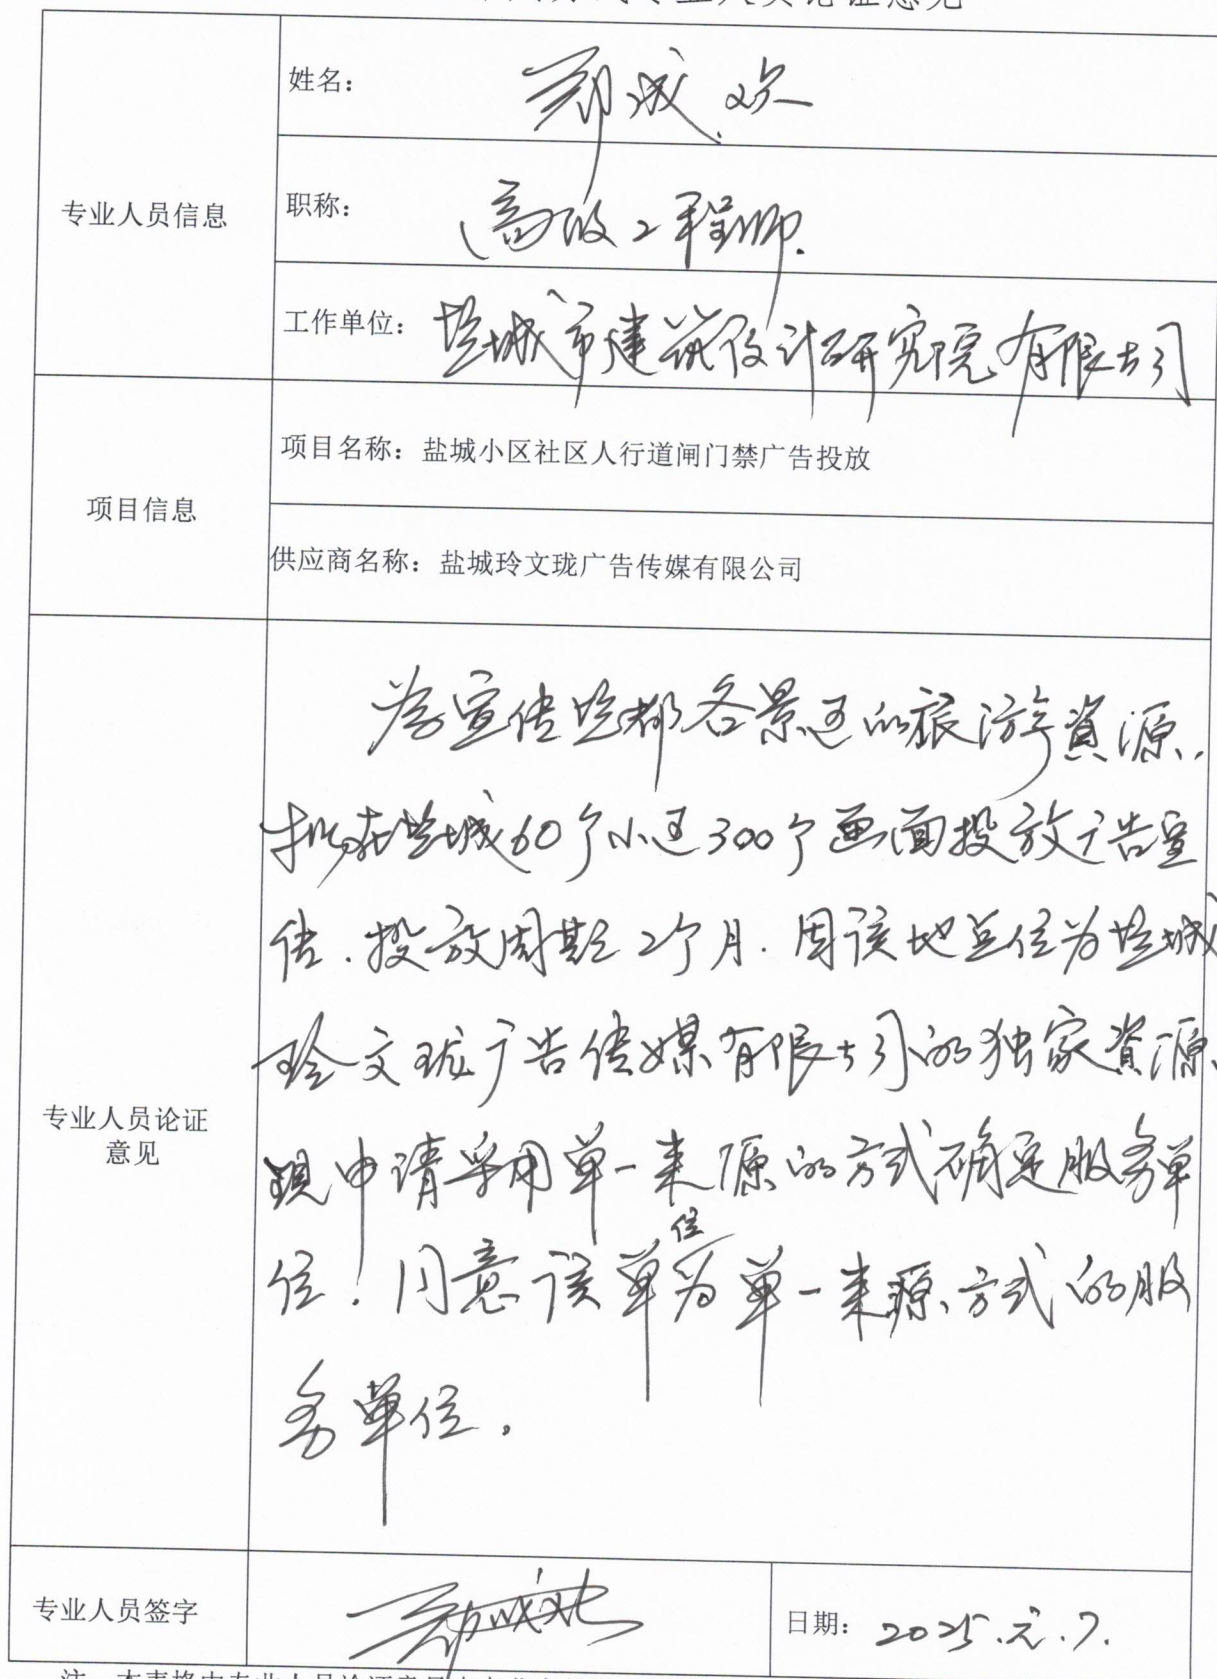 专业人员论证意见
专业人员信息
姓名：郑成欢
职称：高级工程师.
工作单位：盐城市建筑设计研究院有限公司
项目信息
项目名称：盐城小区社区人行道闸门禁广告投放
供应商名称：盐城玲文珑广告传媒有限公司
专业人员论证
意见
为宣传盐都各景区的旅游資源，
拟在盐城60个小区300个画面投放广告宣
传.投放周期2个月.因该地点位为盐城
玲文珑广告传媒有限公司的独家資源
现申请采用单一来源的方式确定服务单
位！同意该单位为单一来源方式的服
务单位。
专业人员签字
日期：2025.元.7.